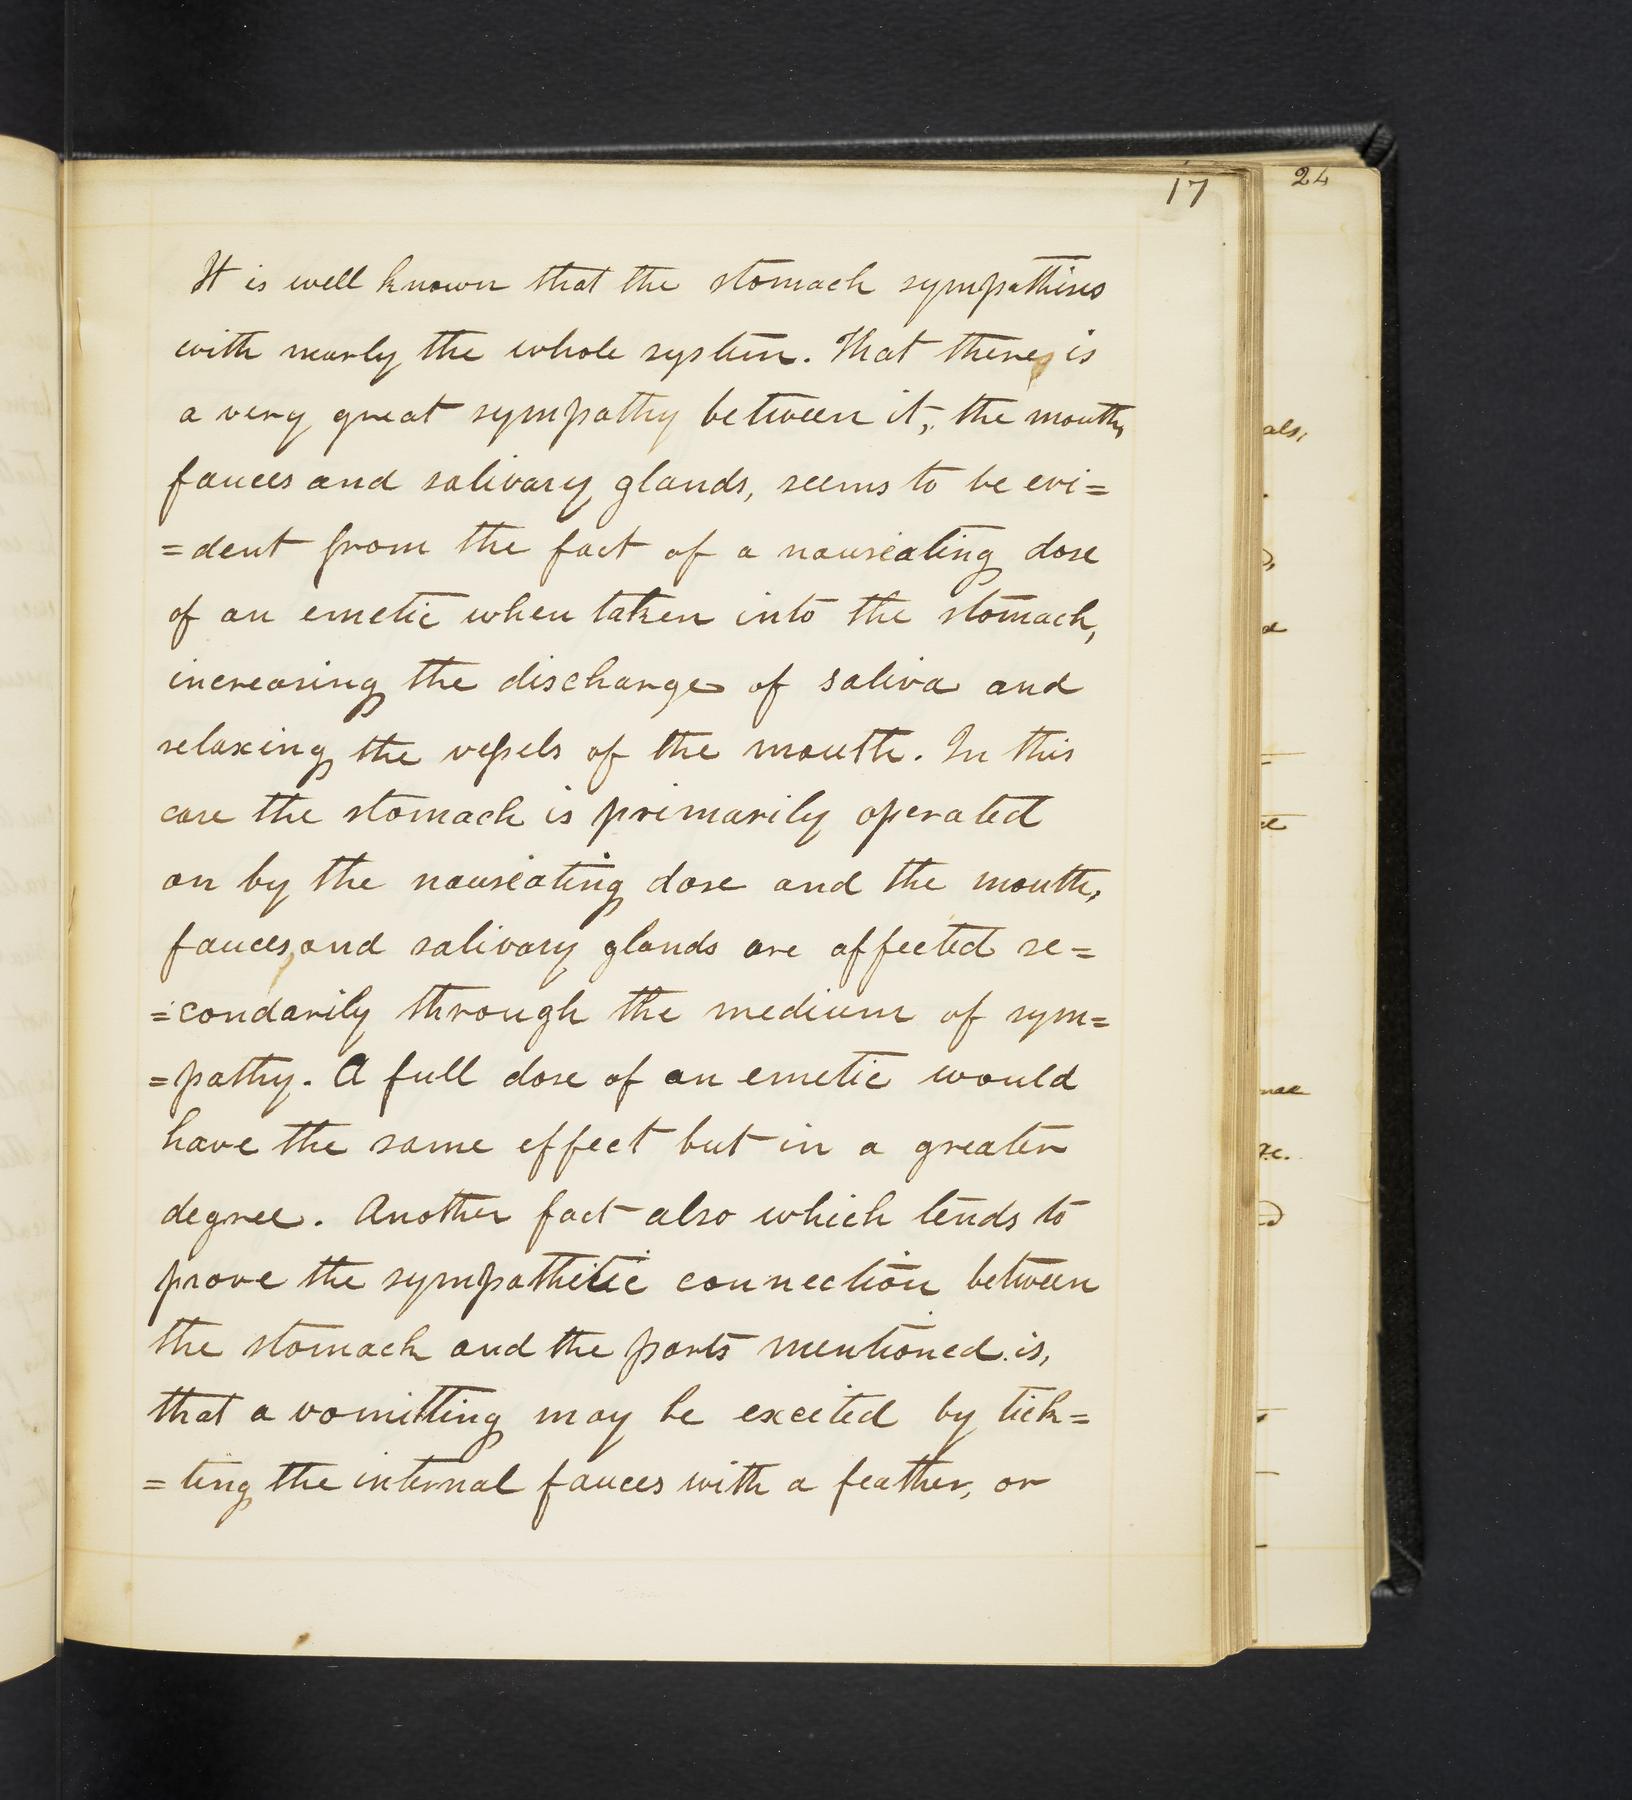 17
24
It is well known that the stomach sympathises
with nearly the whole system. That there is
a very great sympathy between it, the mouth,
fauces and salivary glands, seems to be evi=
=dent from the fact of a nauseating dose
of an emetic when taken into the stomach,
increasing the discharge of saliva and
relaxing the vessels of the mouth. In this
case the stomach is primarily operated
on by the nauseating dose and the mouth,
fauces, and salivary glands are affected se=
=condarily through the medium of sym=
=pathy. A full dose of an emetic would
have the same effect but in a greater
degree. Another fact also which tends to
prove the sympathetic connection between
the stomach and the parts mentioned is,
that a vomitting may be excited by tick=
=ling the internal fauces with a feather, or